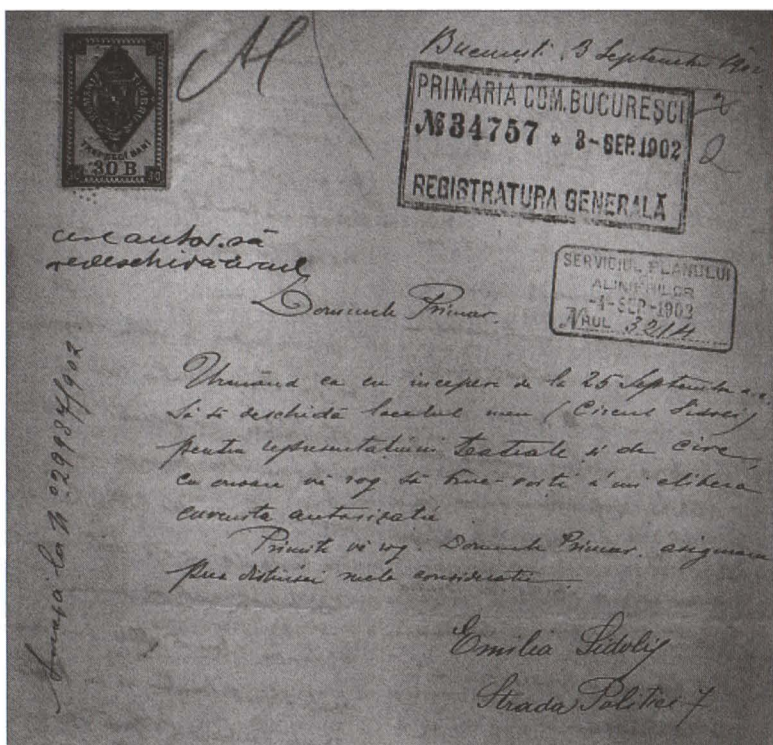 București, 3 Septembrie 1902
PRIMARIA COM. BUCUREȘCI
№ 34757 * 3-SEP. 1902
REGISTRATURA GENERALĂ
2
TIMBRU
30 B
cere autor. să
redeschidă circul
SERVICIUL PLANULUI
ALINIERILOR
-4-SEP-1902
NRUL 3214
Domnule Primar.
Urmând ca cu incepere de la 25 Septembrie a.c.
să se deschidă localul meu (Circul Sidoli)
pentru representațiuni teatrale și de circ,
cu onoare vĕ rog să bine-voiți a'mi elibera
cuvenita autorizație.
Primiți vĕ rog, Domnule Primar, asigurarea
prea distinsei mele considerații.
Emilia Sidoli
Strada Politiei 7
la № 29984/902